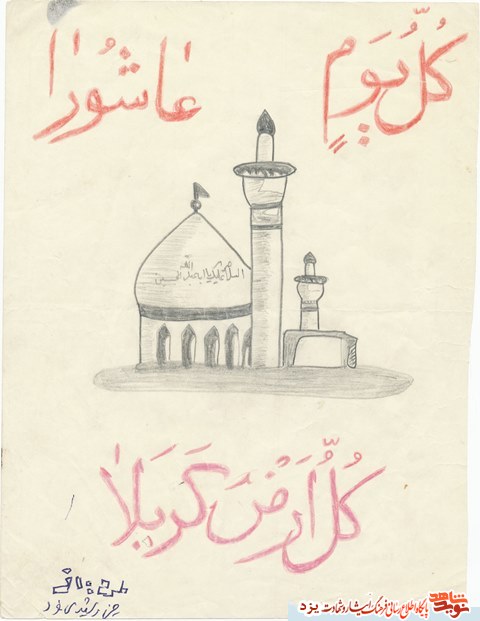 كُلُّ يَوَمٍ عاشُورا
السلام عليك يا ابا عبدالله الحسين
كُلُّ اَرَضَ كَربَلا
طرح
نوید شاهد
پایگاه اطلاع رسانی فرهنگ ایثار و شهادت یزد